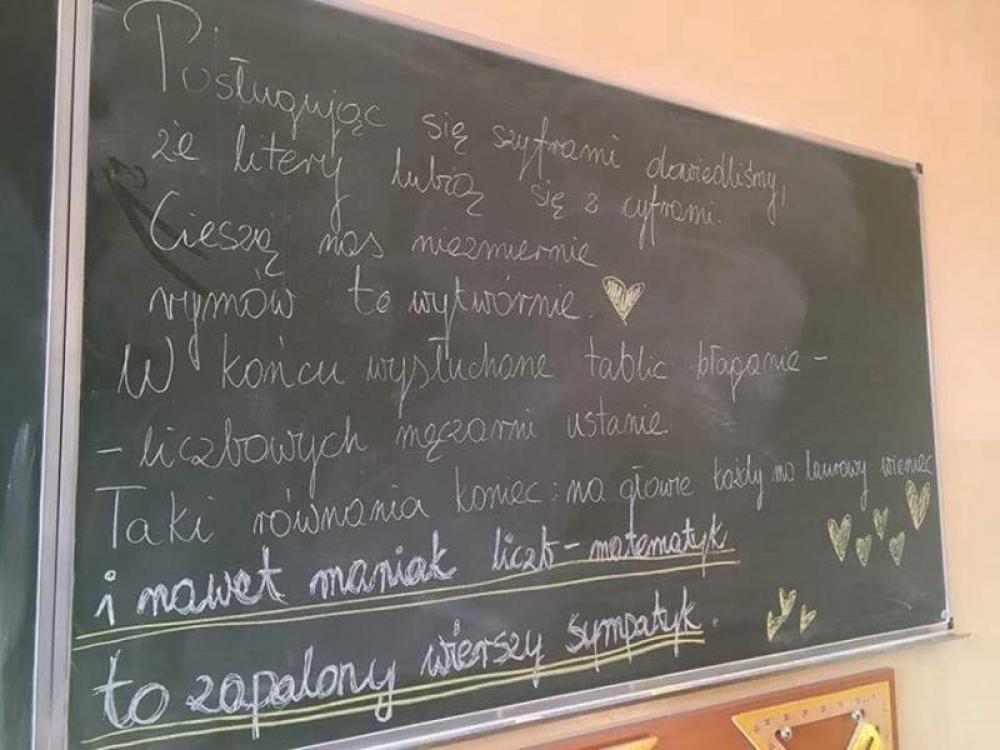 Posługując się szyframi dowiedliśmy,
że litery lubią się z cyframi.
Cieszą nas niezmiernie
rymów te wytwórnie.
W końcu wysłuchane tablic błaganie -
- liczbowych męczarni ustanie.
Taki równania koniec: na głowie każdy ma laurowy wieniec
i nawet maniak liczb - matematyk
to zapalony wierszy sympatyk.